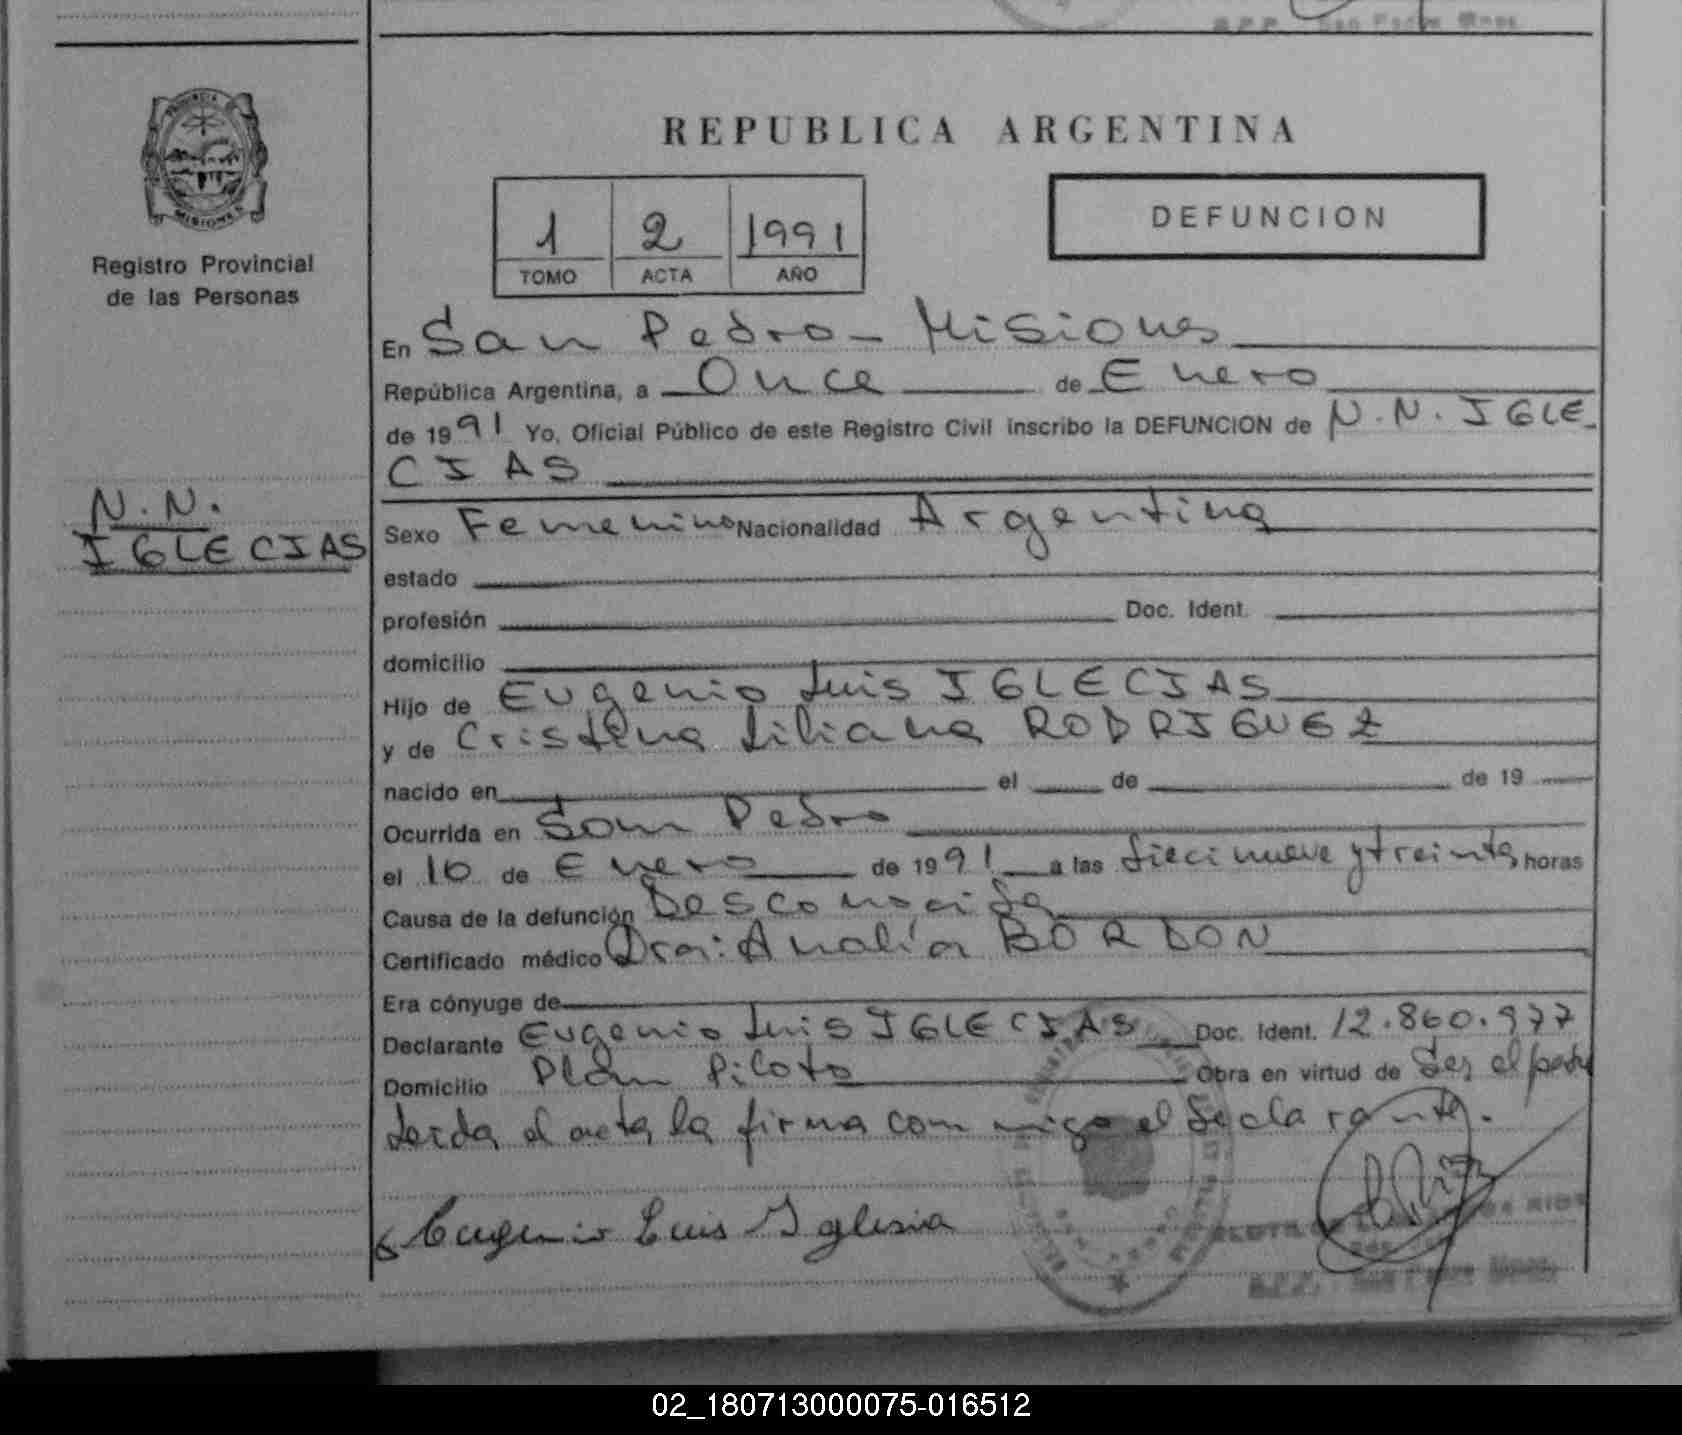 San Pedro Mnes.
REPUBLICA ARGENTINA
PROVINCIA
MISIONES
Registro Provincial
de las Personas
1 2 1991
TOMO ACTA AÑO
DEFUNCION
En San Pedro - Misiones
República Argentina, a Once de Enero
de 1991 Yo, Oficial Público de este Registro Civil inscribo la DEFUNCION de N.N. IGLE-
CIAS
N.N.
IGLECIAS
Sexo Femenino Nacionalidad Argentina
estado
profesión Doc. Ident.
domicilio
Hijo de Eugenio Luis IGLECIAS
y de Cristina Liliana RODRIGUEZ
nacido en el de de 19
Ocurrida en San Pedro
el 10 de Enero de 1991 a las diecinueve y treinta horas
Causa de la defunción Desconocida
Certificado médico Dra: Analía BORDON
Era cónyuge de
Declarante Eugenio Luis IGLECIAS Doc. Ident. 12.860.977
Domicilio Plan Piloto Obra en virtud de ser el padre
Leida el acta la firma con migo el declarante.
Eugenio Luis Iglesia
02_180713000075-016512